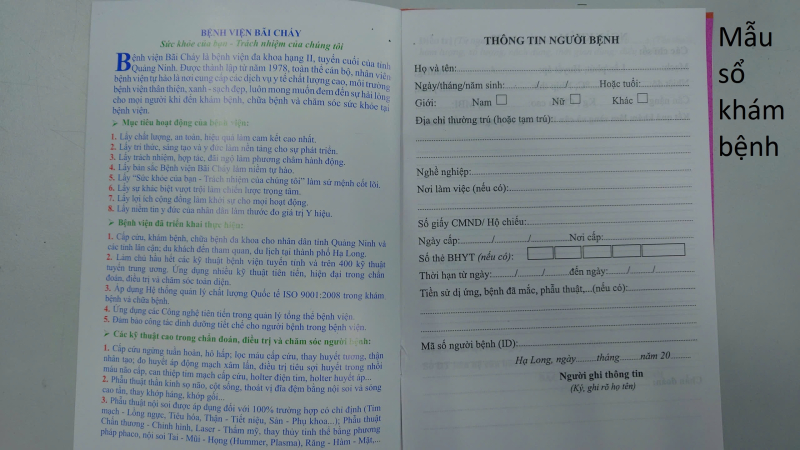 BỆNH VIỆN BÃI CHÁY
Sức khỏe của bạn - Trách nhiệm của chúng tôi
Bệnh viện Bãi Cháy là bệnh viện đa khoa hạng II, tuyến cuối của tỉnh
Quảng Ninh. Được thành lập từ năm 1978, toàn thể cán bộ, nhân viên
bệnh viện tự hào là nơi cung cấp các dịch vụ y tế chất lượng cao, môi trường
bệnh viện thân thiện, xanh - sạch đẹp, luôn mong muốn đem đến sự hài lòng
cho mọi người khi đến khám bệnh, chữa bệnh và chăm sóc sức khỏe tại
bệnh viện.
➢ Mục tiêu hoạt động của bệnh viện:
1. Lấy chất lượng, an toàn, hiệu quả làm cam kết cao nhất.
2. Lấy tri thức, sáng tạo và y đức làm nền tảng cho sự phát triển.
3. Lấy trách nhiệm, hợp tác, đãi ngộ làm phương châm hành động.
4. Lấy bản sắc Bệnh viện Bãi Cháy làm niềm tự hào.
5. Lấy “Sức khỏe của bạn - Trách nhiệm của chúng tôi” làm sứ mệnh cốt lõi.
6. Lấy sự khác biệt vượt trội làm chiến lược trọng tâm.
7. Lấy lợi ích cộng đồng làm khởi sự cho mọi hoạt động.
8. Lấy niềm tin y đức của nhân dân làm thước đo giá trị Y hiệu.
➢ Bệnh viện đã triển khai thực hiện:
1. Cấp cứu, khám bệnh, chữa bệnh đa khoa cho nhân dân tỉnh Quảng Ninh và
các tỉnh lân cận; du khách đến tham quan, du lịch tại thành phố Hạ Long.
2. Làm chủ hầu hết các kỹ thuật bệnh viện tuyến tỉnh và trên 400 kỹ thuật
tuyến trung ương. Ứng dụng nhiều kỹ thuật tiên tiến, hiện đại trong chẩn
đoán, điều trị và chăm sóc toàn diện.
3. Áp dụng Hệ thống quản lý chất lượng Quốc tế ISO 9001:2008 trong khám
bệnh và chữa bệnh.
4. Ứng dụng các Công nghệ tiên tiến trong quản lý tổng thể bệnh viện.
5. Đảm bảo công tác dinh dưỡng tiết chế cho người bệnh trong bệnh viện.
➢ Các kỹ thuật cao trong chẩn đoán, điều trị và chăm sóc người bệnh:
1. Cấp cứu ngừng tuần hoàn, hô hấp; lọc máu cấp cứu, thay huyết tương, thận
nhân tạo; đo huyết áp động mạch xâm lấn, điều trị tiêu sợi huyết trong nhồi
máu não cấp, can thiệp tim mạch cấp cứu, holter điện tim, holter huyết áp...
2. Phẫu thuật thần kinh sọ não, cột sống, thoát vị đĩa đệm bằng nội soi và sóng
cao tần, thay khớp háng, khớp gối...
3. Phẫu thuật nội soi được áp dụng đối với 100% trường hợp có chỉ định (Tim
mạch - Lồng ngực, Tiêu hóa, Thận - Tiết niệu, Sản - Phụ khoa...); Phẫu thuật
Chấn thương - Chỉnh hình, Laser - Thẩm mỹ, thay thủy tinh thể bằng phương
pháp phaco, nội soi Tai - Mũi - Họng (Hummer, Plasma), Răng - Hàm - Mặt,...
THÔNG TIN NGƯỜI BỆNH
Họ và tên:
Ngày/tháng/năm sinh: / / Hoặc tuổi:
Giới: Nam Nữ Khác
Địa chỉ thường trú (hoặc tạm trú):
Nghề nghiệp:
Nơi làm việc (nếu có):
Số giấy CMND/ Hộ chiếu:
Ngày cấp: / / Nơi cấp:
Số thẻ BHYT (nếu có):
Thời hạn từ ngày: / / đến ngày: / /
Tiền sử dị ứng, bệnh đã mắc, phẫu thuật,...(nếu có):
Mã số người bệnh (ID):
Hạ Long, ngày tháng năm 20
Người ghi thông tin
(Ký, ghi rõ họ tên)
Mẫu
sổ
khám
bệnh